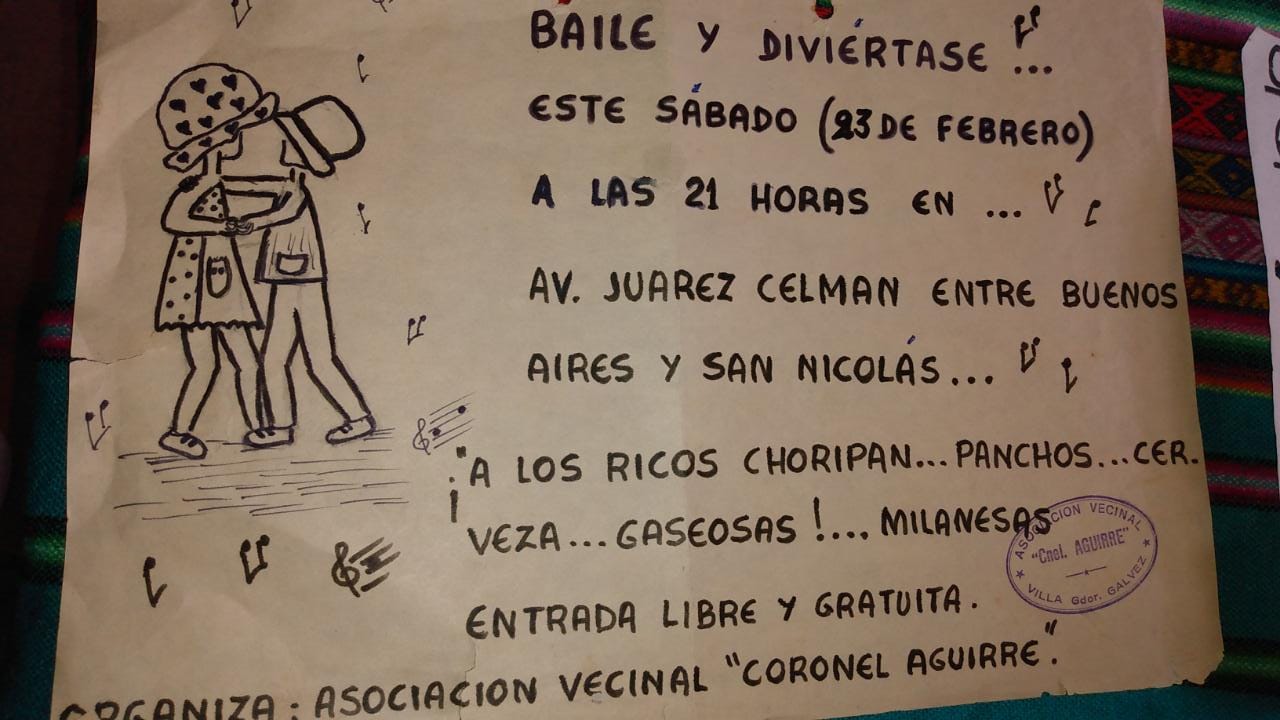 BAILE Y DIVIÉRTASE...
ESTE SÁBADO (23 DE FEBRERO)
A LAS 21 HORAS EN ...
AV. JUAREZ CELMAN ENTRE BUENOS
AIRES Y SAN NICOLÁS...
¡"A LOS RICOS CHORIPAN... PANCHOS... CER.
VEZA... GASEOSAS!... MILANESAS
ASOCIACION VECINAL
"Cnel. AGUIRRE"
VILLA Gdor. GALVEZ
ENTRADA LIBRE Y GRATUITA.
ORGANIZA: ASOCIACION VECINAL "CORONEL AGUIRRE".